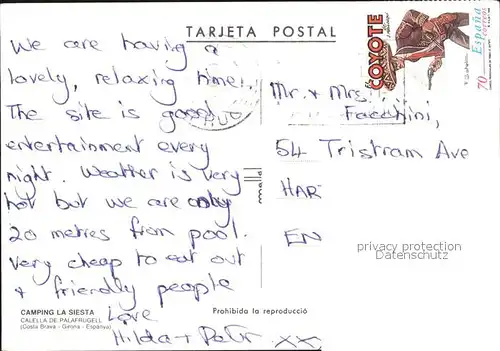 TARJETA POSTAL
We are having a
lovely, relaxing time!.
The site is good
entertainment every
night. Weather is very
hot but we are only
20 metres from pool.
Very cheap to eat out
+ friendly people
Love
Hilda +
xx
CAMPING LA SIESTA
CALELLA DE PALAFRUGELL
(Costa Brava - Girona - Espanya)
Prohibida la reproducció
El COYOTE
España
correos
70
Mr. + Mrs.
Facchini,
54 Tristram Ave
HAR
EN
privacy protection
Datenschutz